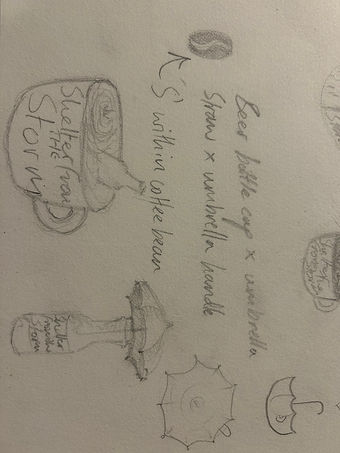 Beer bottle cap x umbrella
Straw x umbrella handle
'S' within coffee bean
Shelter from
THE
Storm
Shelter
from the
Storm